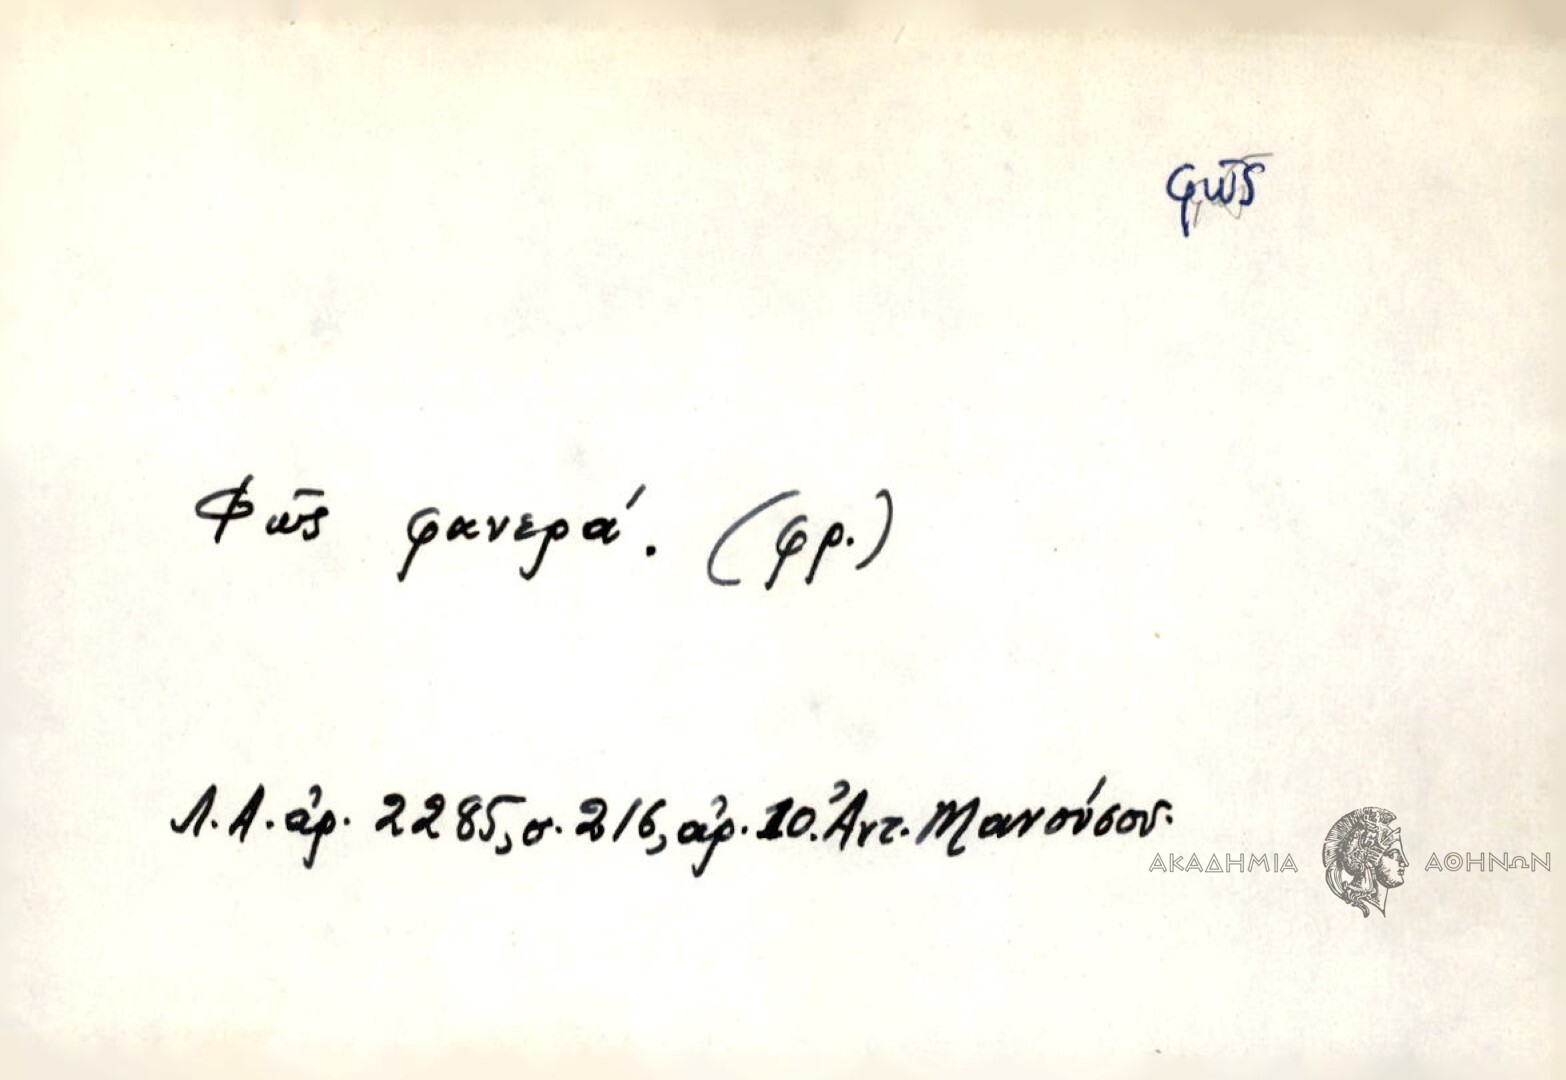 φῶς
Φῶς φανερά. (φρ.)
Λ.Α. ἀρ. 2285, σ. 216, ἀρ. 10. Ἀντ. Μανούσου.
ΑΚΑΔΗΜΙΑ ΑΘΗΝΩΝ